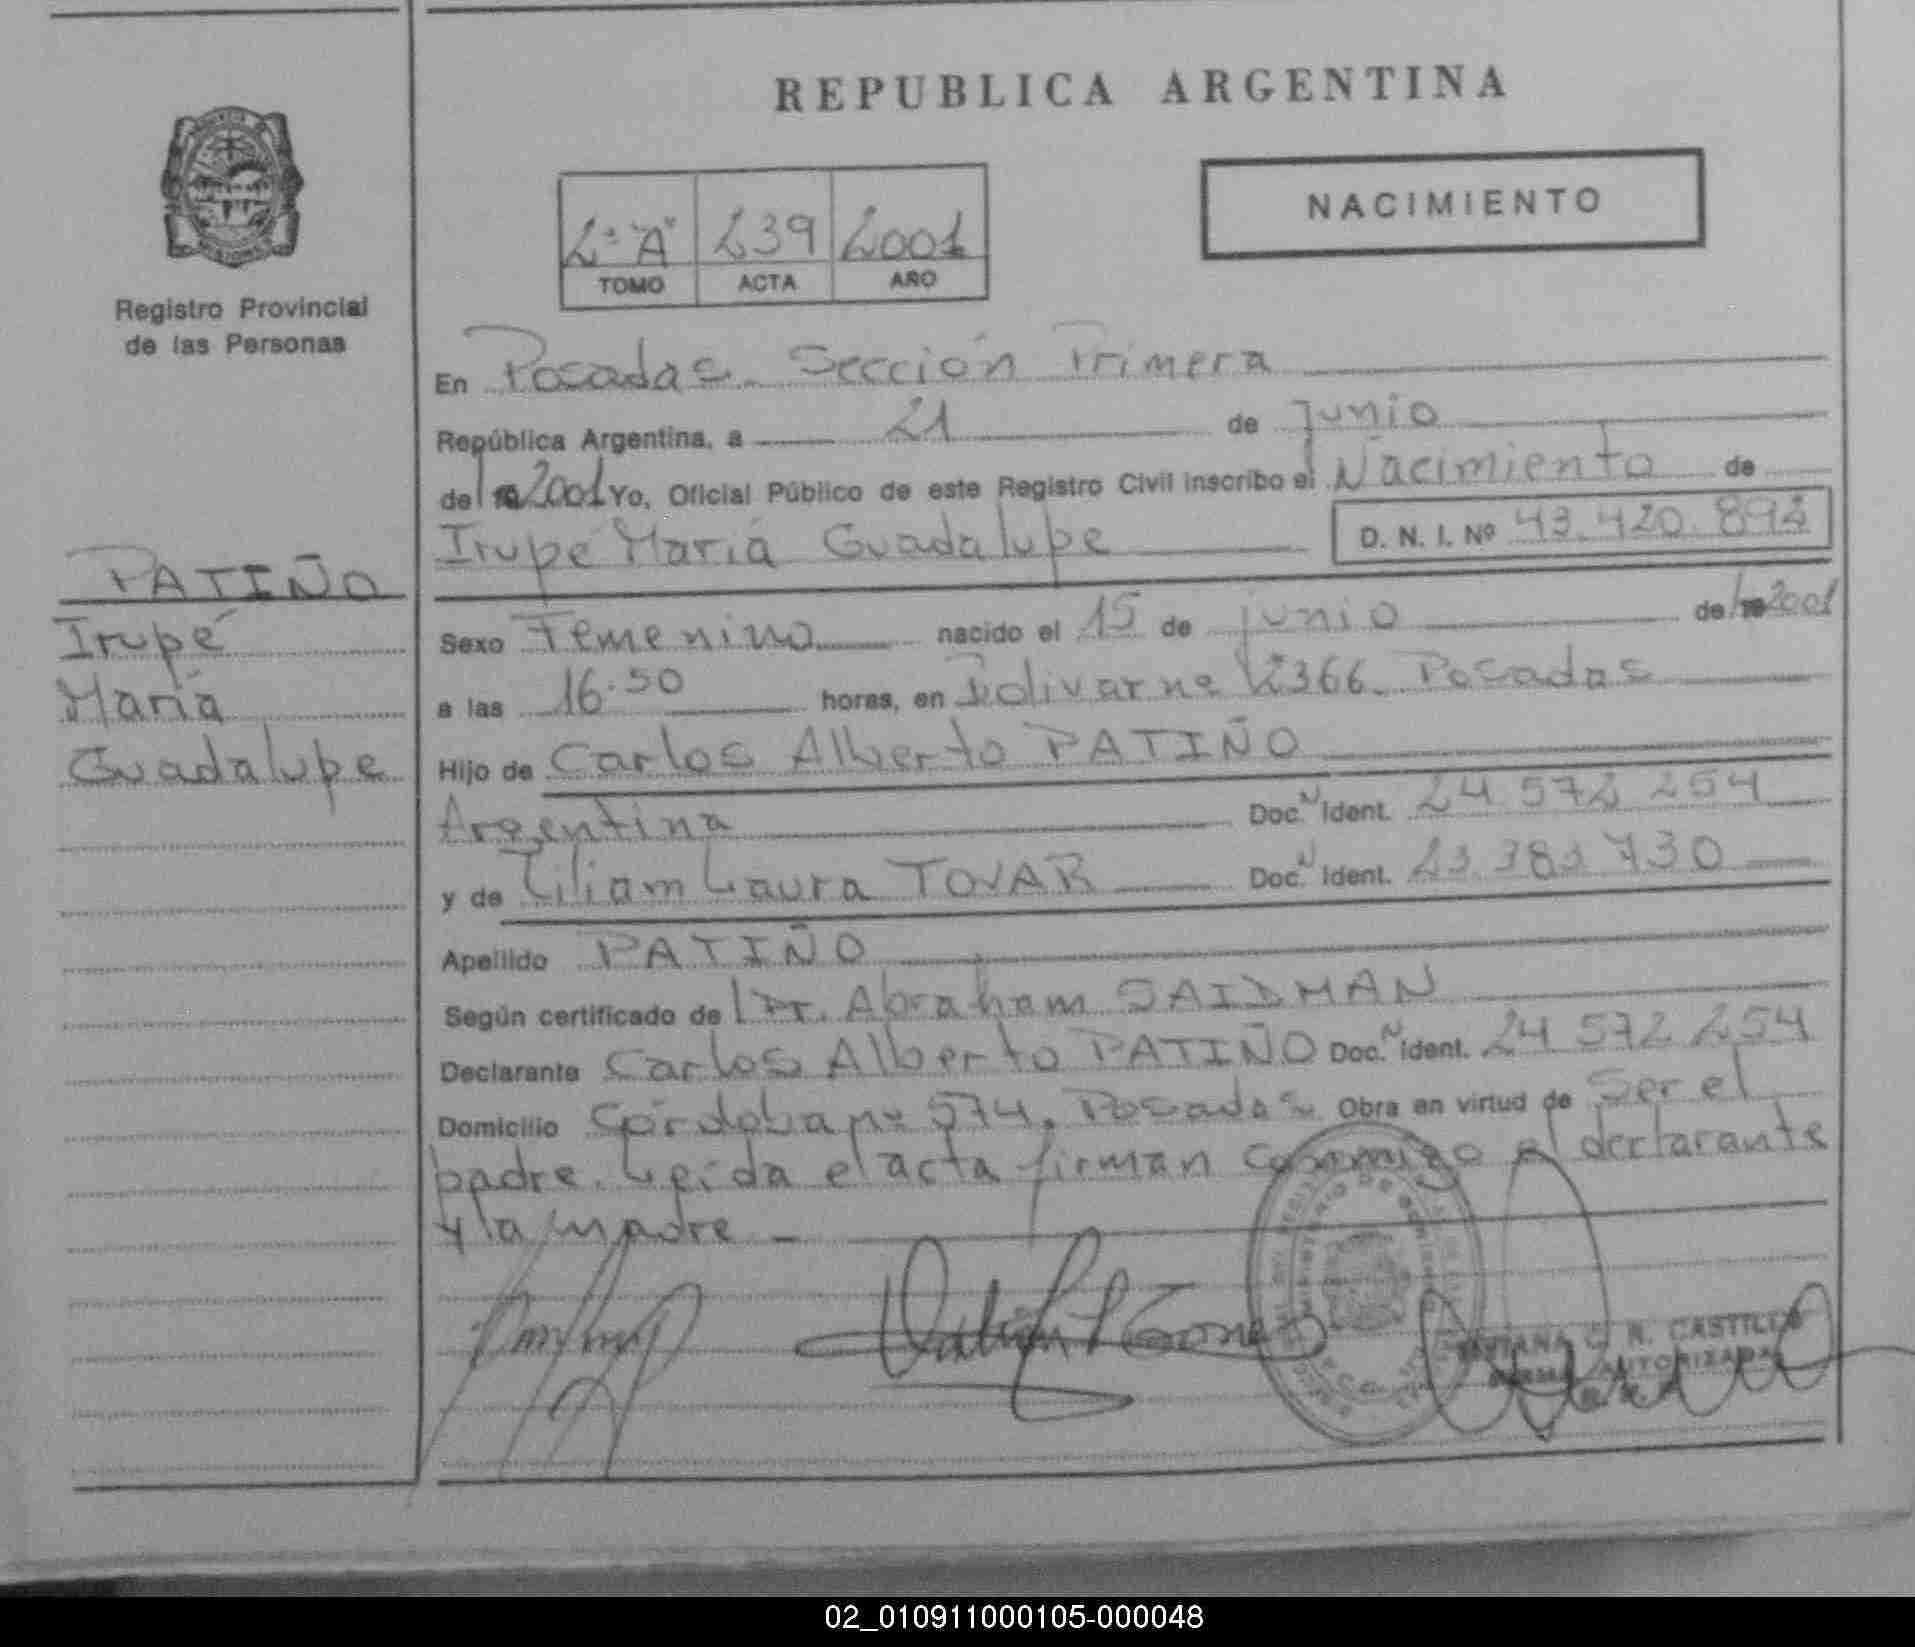 REPUBLICA ARGENTINA
NACIMIENTO
2º "A" 239 2001
TOMO ACTA AÑO
Registro Provincial
de las Personas
En Posadas. Sección Primera
República Argentina, a 21 de junio
de 2001 Yo, Oficial Público de este Registro Civil inscribo el Nacimiento de
Irupé María Guadalupe D. N. I. Nº 43.420.894
PATIÑO
Irupé
María
Guadalupe
Sexo Femenino nacido el 15 de junio de 2001
a las 16:50 horas, en Bolivar nº 2366. Posadas
Hijo de Carlos Alberto PATIÑO
Argentina Doc. Ident. 24 572 254
y de Liliam Laura TOVAR Doc. Ident. 23.383 730
Apellido PATIÑO
Según certificado de Dr. Abraham SAIDMAN
Declarante Carlos Alberto PATIÑO Doc. Ident. 24 572 254
Domicilio Córdoba nº 574, Posadas Obra en virtud de Ser el
padre. Leída el acta firman conmigo el declarante
y la madre
C. R. CASTILLO
AUTORIZADA
02_010911000105-000048